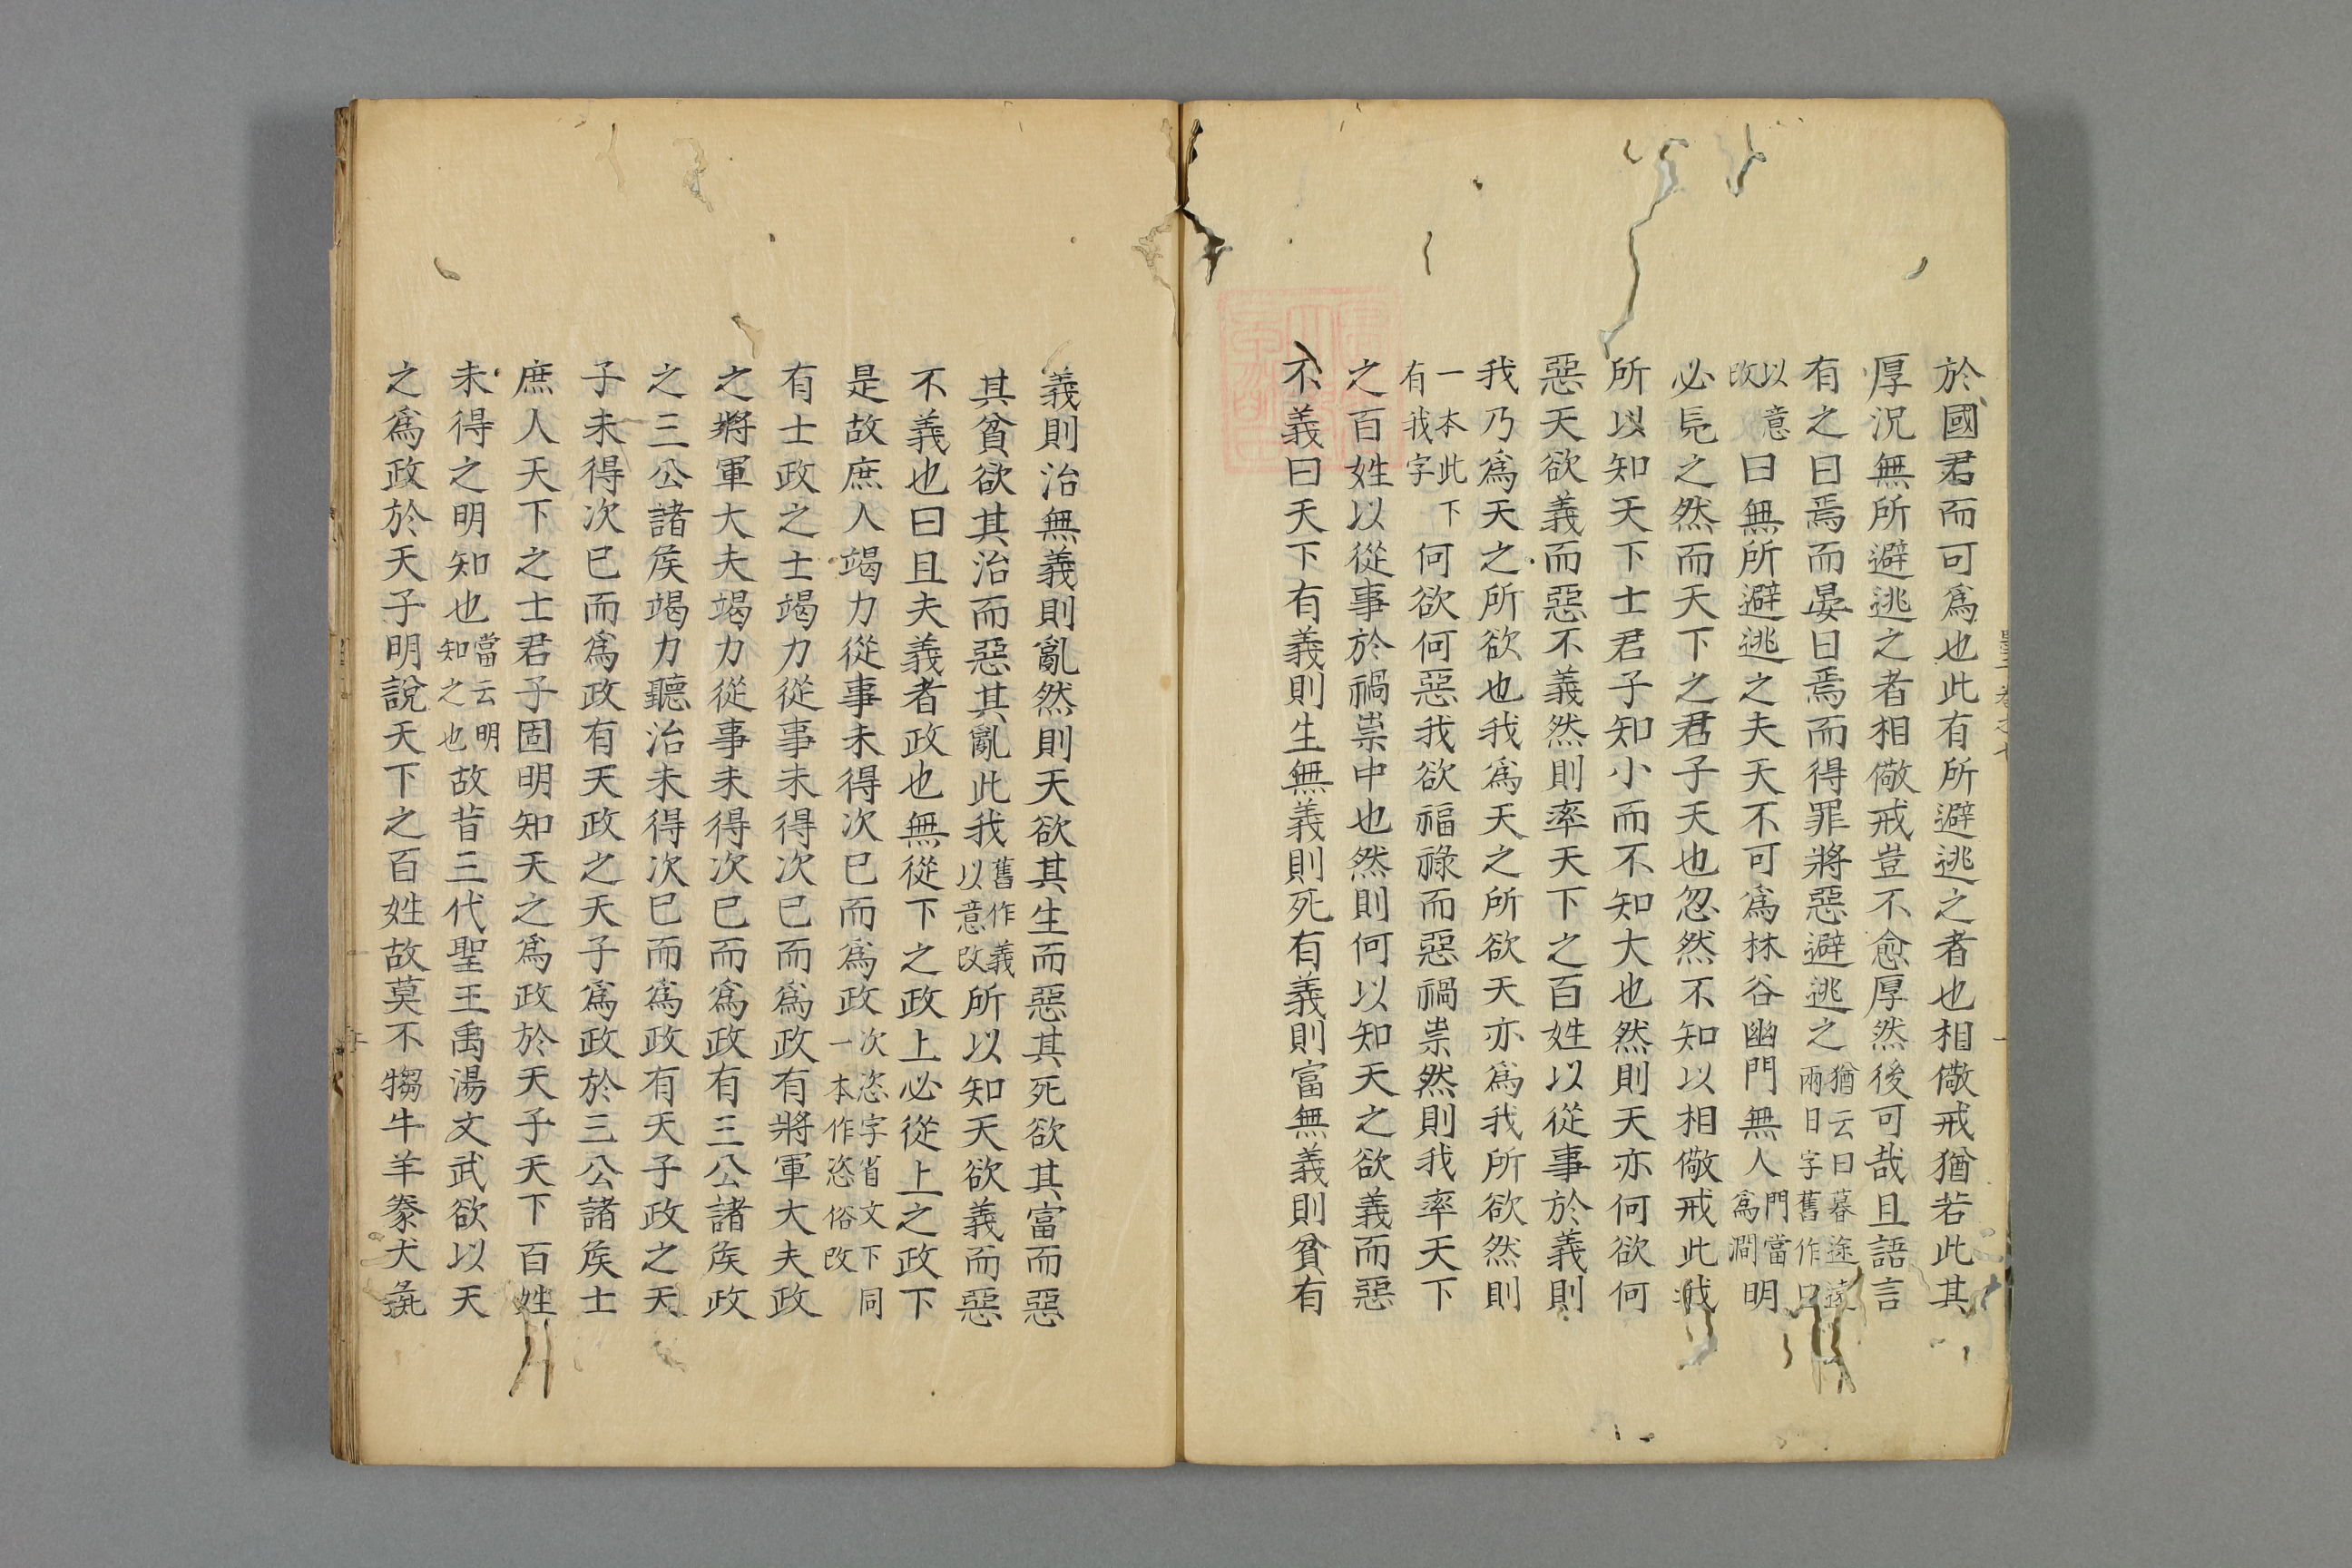 於國君而可爲也此有所避逃之者也相儆戒猶若此其
厚況無所避逃之者相儆戒豈不愈厚然後可哉且語言
有之曰焉而晏日焉而得罪將惡避逃之猶云日暮途遠兩日字舊作曰
以意改曰無所避逃之夫天不可爲林谷幽門無人門當爲澗明
必見之然而天下之君子天也忽然不知以相儆戒此我
所以知天下士君子知小而不知大也然則天亦何欲何
惡天欲義而惡不義然則率天下之百姓以從事於義則
我乃爲天之所欲也我爲天之所欲天亦爲我所欲然則
一本此下有我字何欲何惡我欲福祿而惡禍祟然則我率天下
之百姓以從事於禍祟中也然則何以知天之欲義而惡
不義曰天下有義則生無義則死有義則富無義則貧有
義則治無義則亂然則天欲其生而惡其死欲其富而惡
其貧欲其治而惡其亂此我舊作義以意改所以知天欲義而惡
不義也曰且夫義者政也無從下之政上必從上之政下
是故庶人竭力從事未得次已而爲政次恣字省文下同一本作恣俗改
有士政之士竭力從事未得次已而爲政有將軍大夫政
之將軍大夫竭力從事未得次已而爲政有三公諸矦政
之三公諸矦竭力聽治未得次已而爲政有天子政之天
子未得次已而爲政有天政之天子爲政於三公諸矦士
庶人天下之士君子固明知天之爲政於天子天下百姓
未得之明知也當云明知之也故昔三代聖王禹湯文武欲以天
之爲政於天子明說天下之百姓故莫不犓牛羊豢犬彘